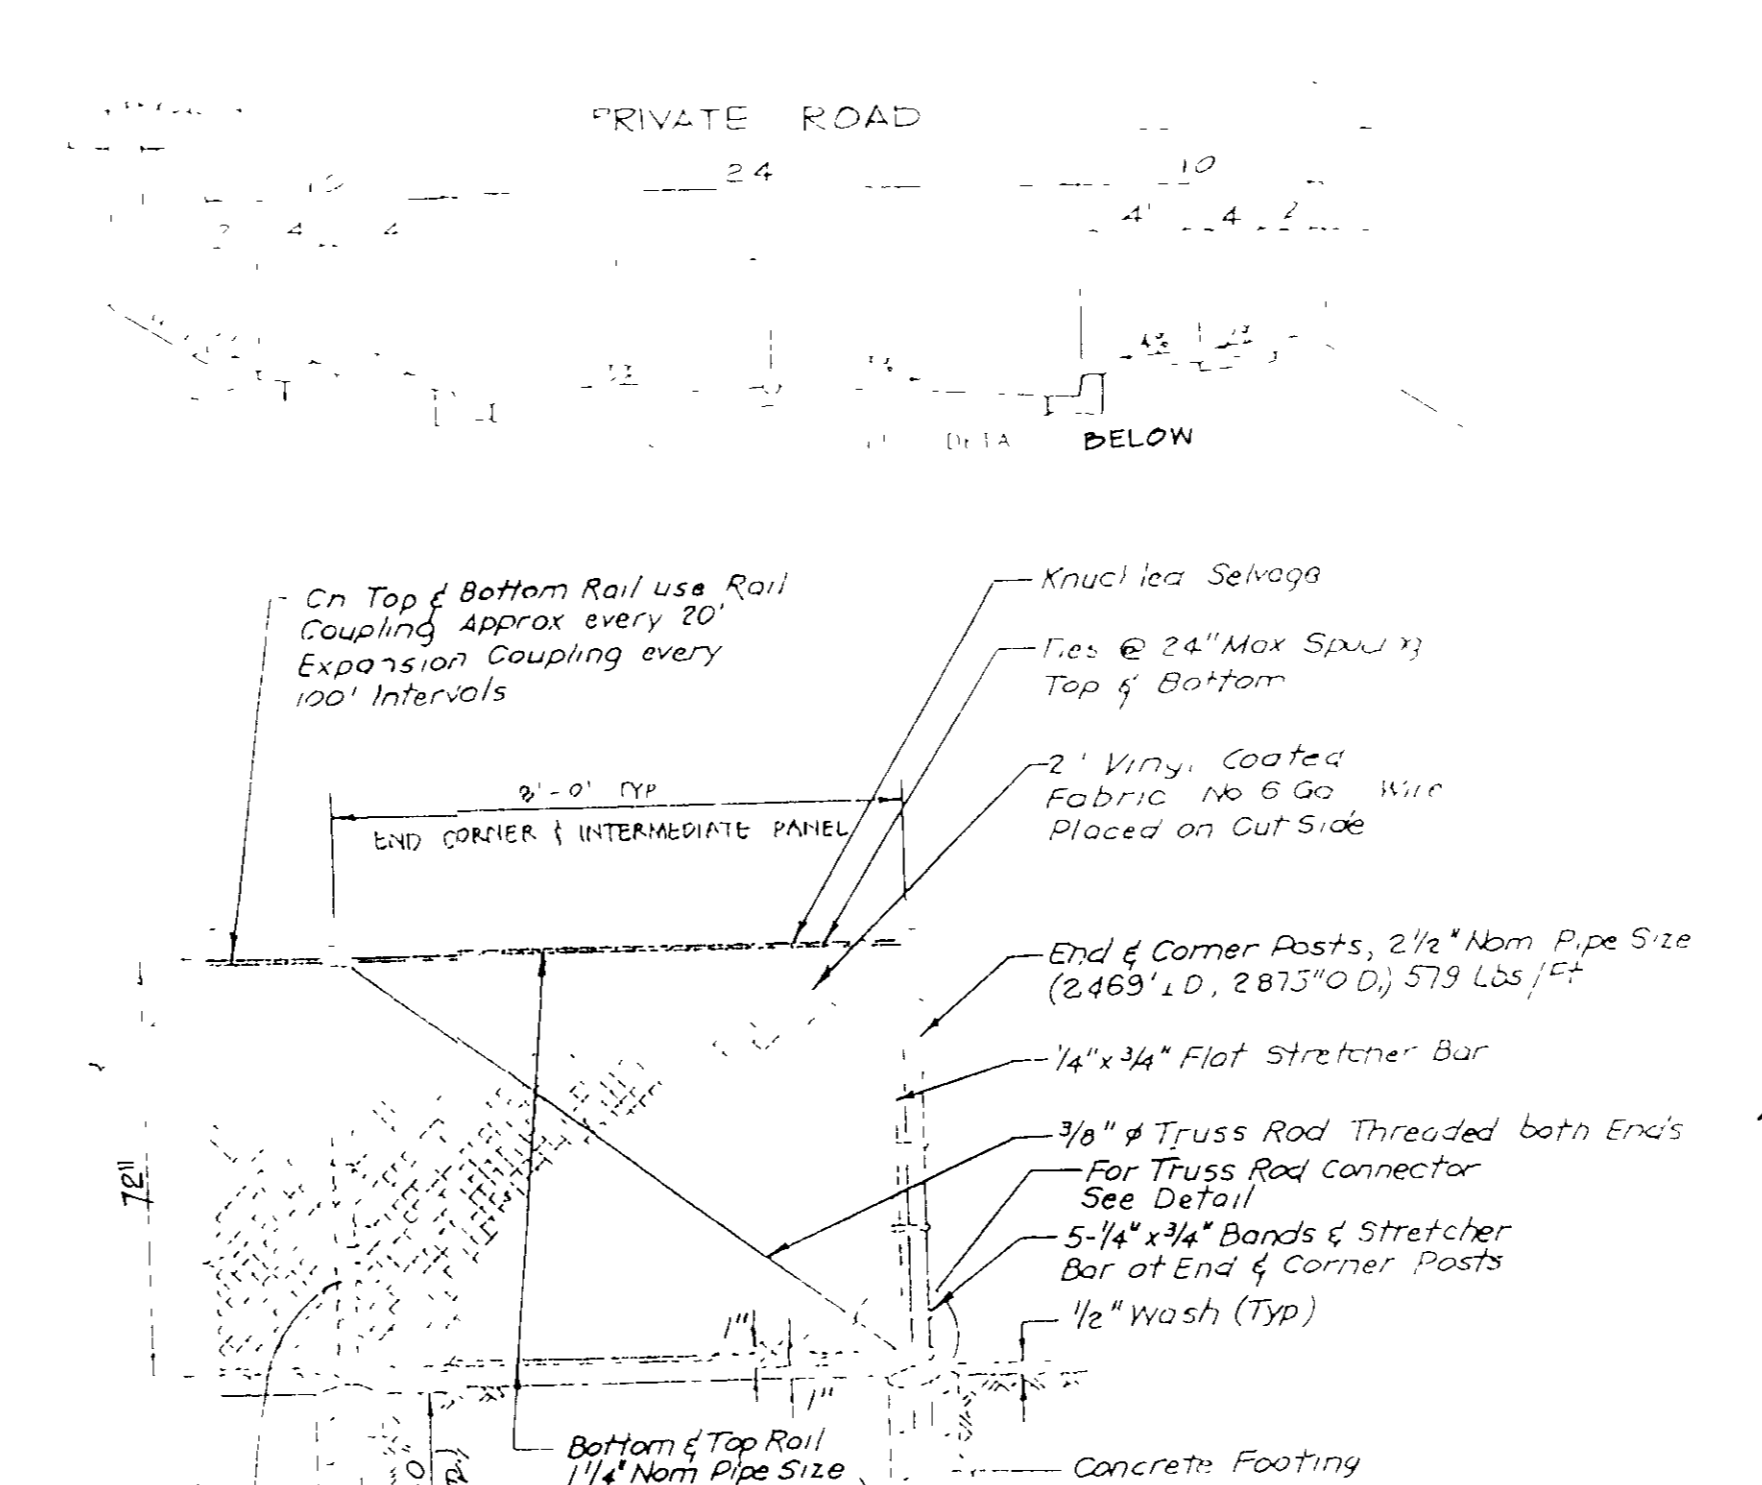 PRIVATE ROAD
24
10
4' 4 2
2 4 4
BELOW
On Top & Bottom Rail use Rail
Coupling Approx every 20'
Expansion Coupling every
100' Intervals
Knuckled Selvage
Ties @ 24" Max Spacing
Top & Bottom
2" Vinyl Coated
Fabric No 6 Ga Wire
Placed on Out Side
8'-0" TYP
END CORNER & INTERMEDIATE PANEL
End & Corner Posts, 2 1/2" Nom Pipe Size
(2469" I D, 2875" O D,) 579 Lbs/Ft
1/4" x 3/4" Flat Stretcher Bar
3/8" ϕ Truss Rod Threaded both End's
For Truss Rod Connector
See Detail
5-1/4" x 3/4" Bands & Stretcher
Bar at End & Corner Posts
1/2" Wash (Typ)
72"
1"
1"
Bottom & Top Rail
1 1/4" Nom Pipe Size
Concrete Footing